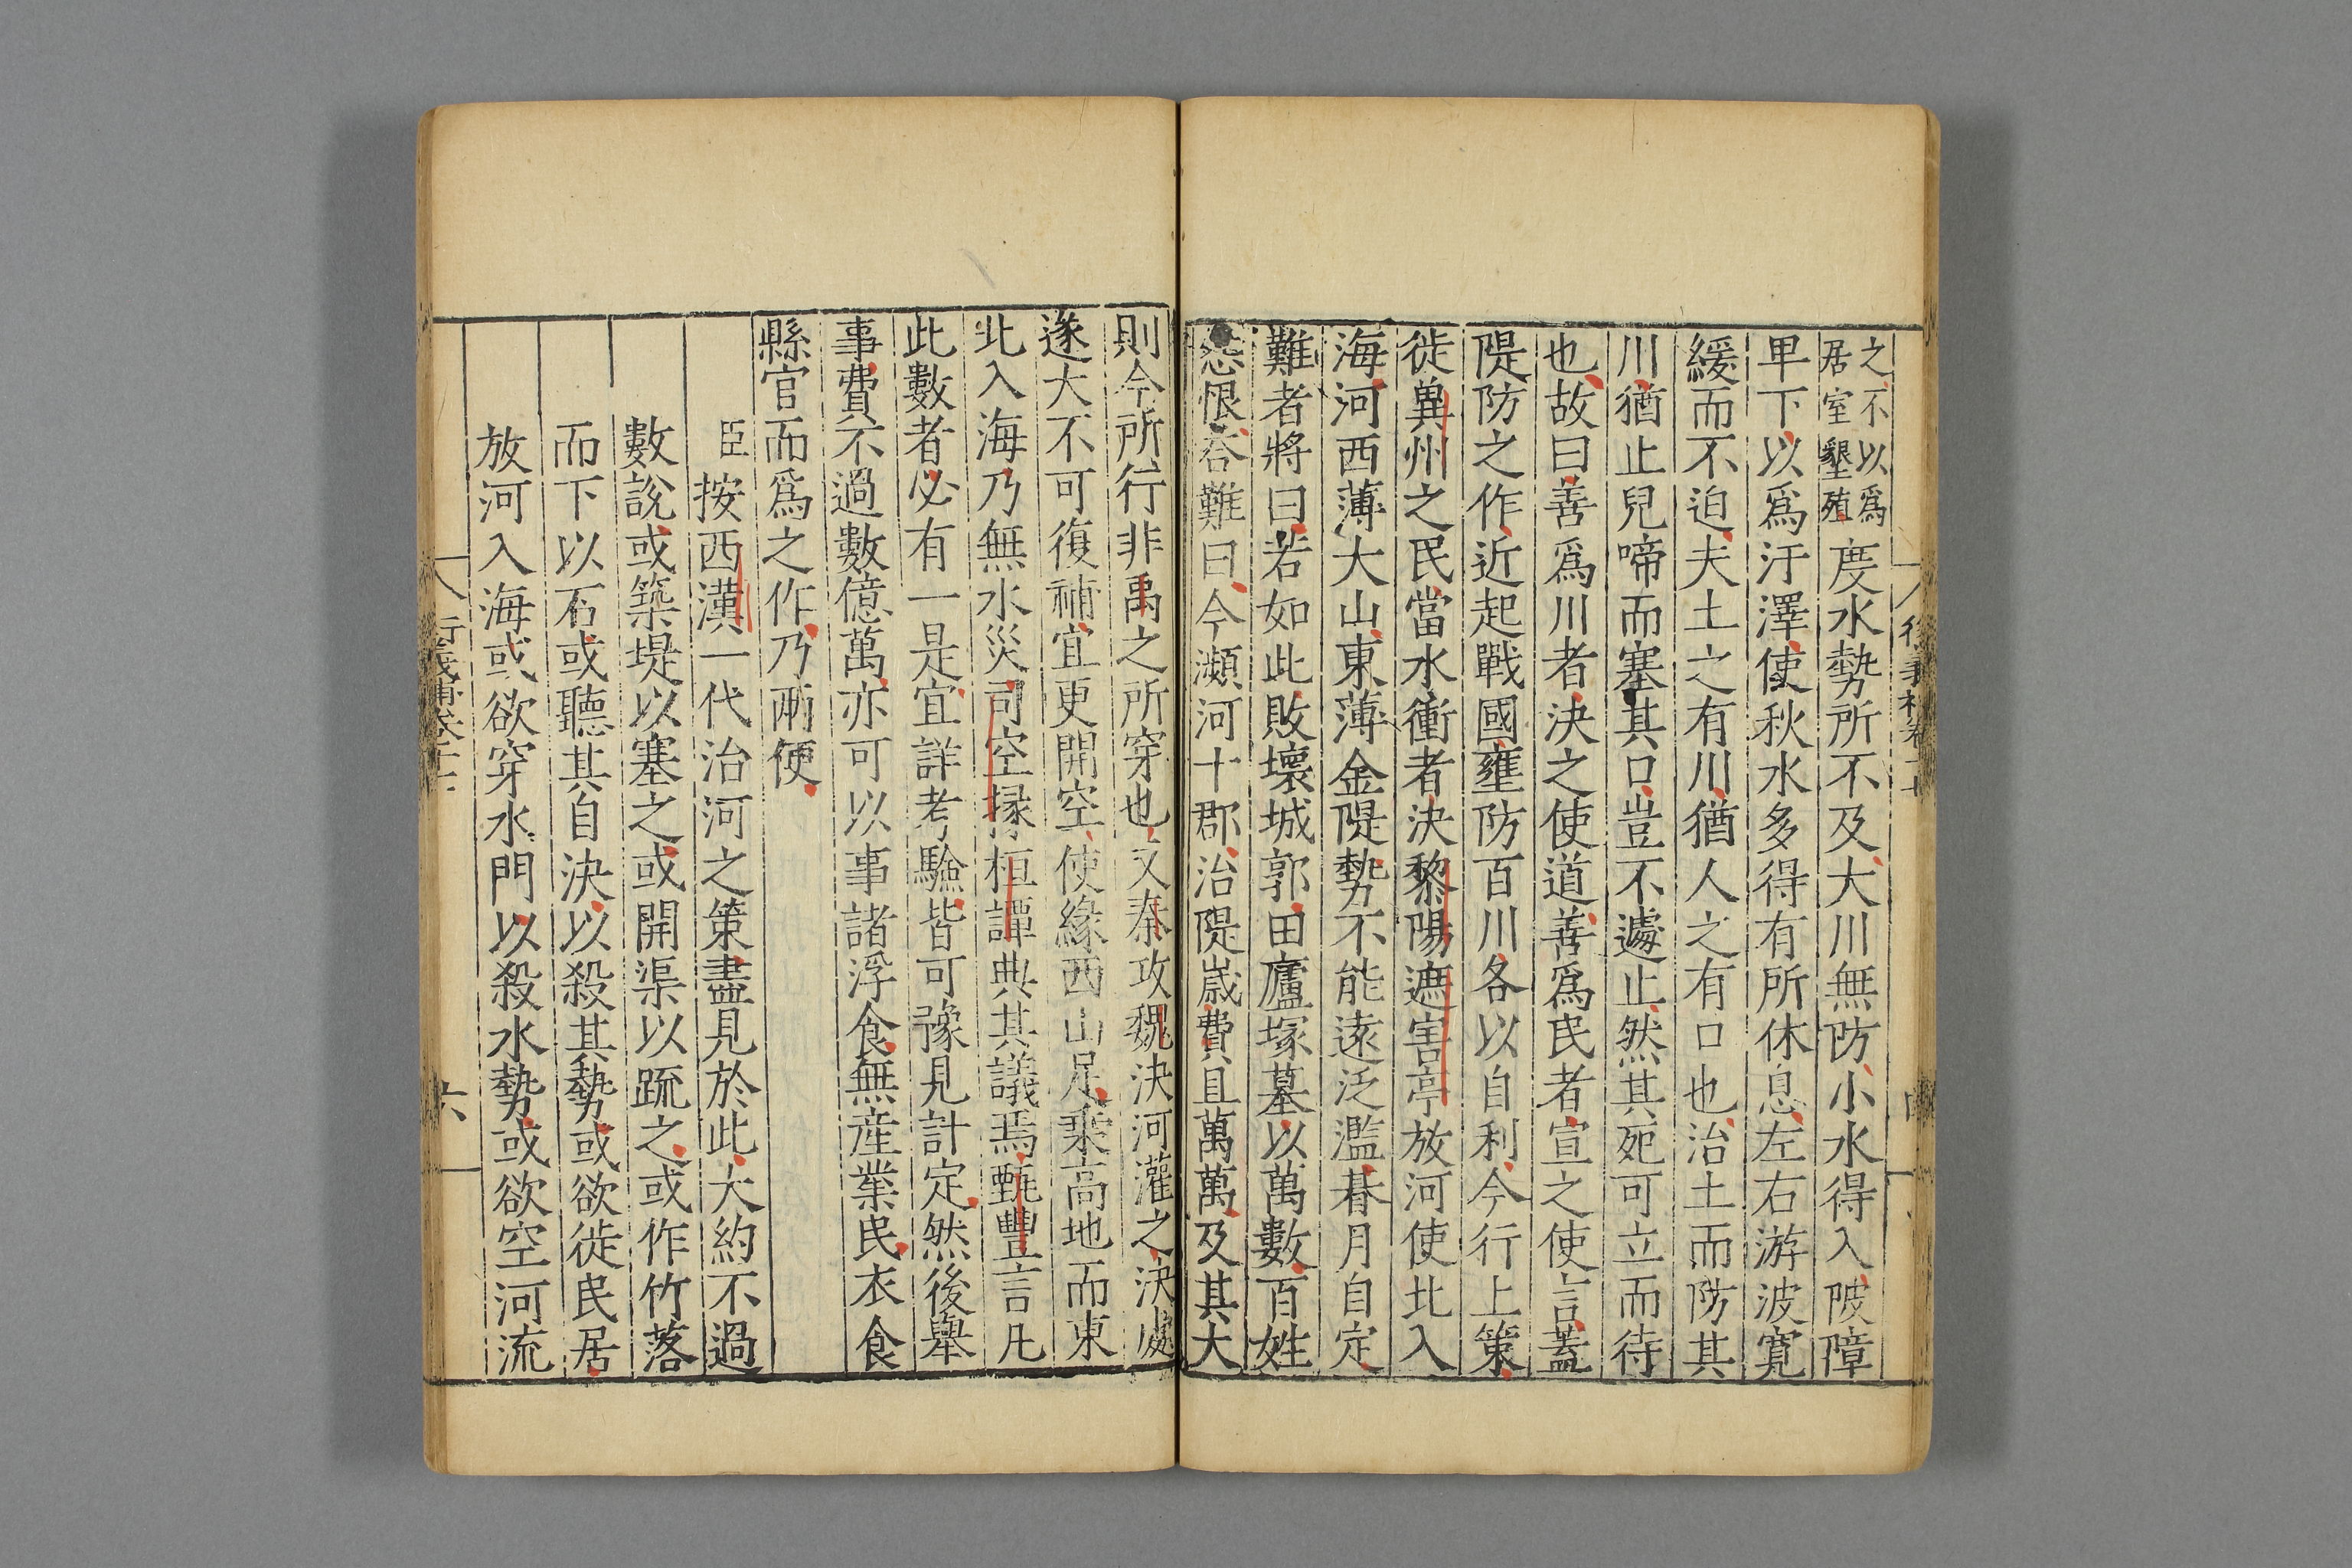 之不以為
居室墾殖度水勢所不及大川無防小水得入陂障
卑下以爲汙澤使秋水多得有所休息左右游波寬
緩而不迫夫土之有川猶人之有口也治土而防其
川猶止兒啼而塞其口豈不遽止然其死可立而待
也故曰善爲川者決之使道善爲民者宣之使言蓋
隄防之作近起戰國壅防百川各以自利今行上策
徙兾州之民當水衝者決黎陽遮害亭放河使北入
海河西薄大山東薄金隄勢不能遠泛濫朞月自定
難者將曰若如此敗壞城郭田廬塚墓以萬數百姓
怨恨荅難曰今瀕河十郡治隄嵗費且萬萬及其大
則今所行非禹之所穿也又秦攻魏決河灌之決處
遂大不可復補宜更開空使緣西山足乘高地而東
北入海乃無水災司空掾桓譚典其議焉甄豐言凡
此數者必有一是宜詳考驗皆可豫見計定然後舉
事費不過數億萬亦可以事諸浮食無産業民衣食
縣官而爲之作乃兩便
臣按西漢一代治河之策盡見於此大約不過
數說或築堤以塞之或開渠以疏之或作竹落
而下以石或聽其自決以殺其勢或欲徙民居
放河入海或欲穿水門以殺水勢或欲空河流
六